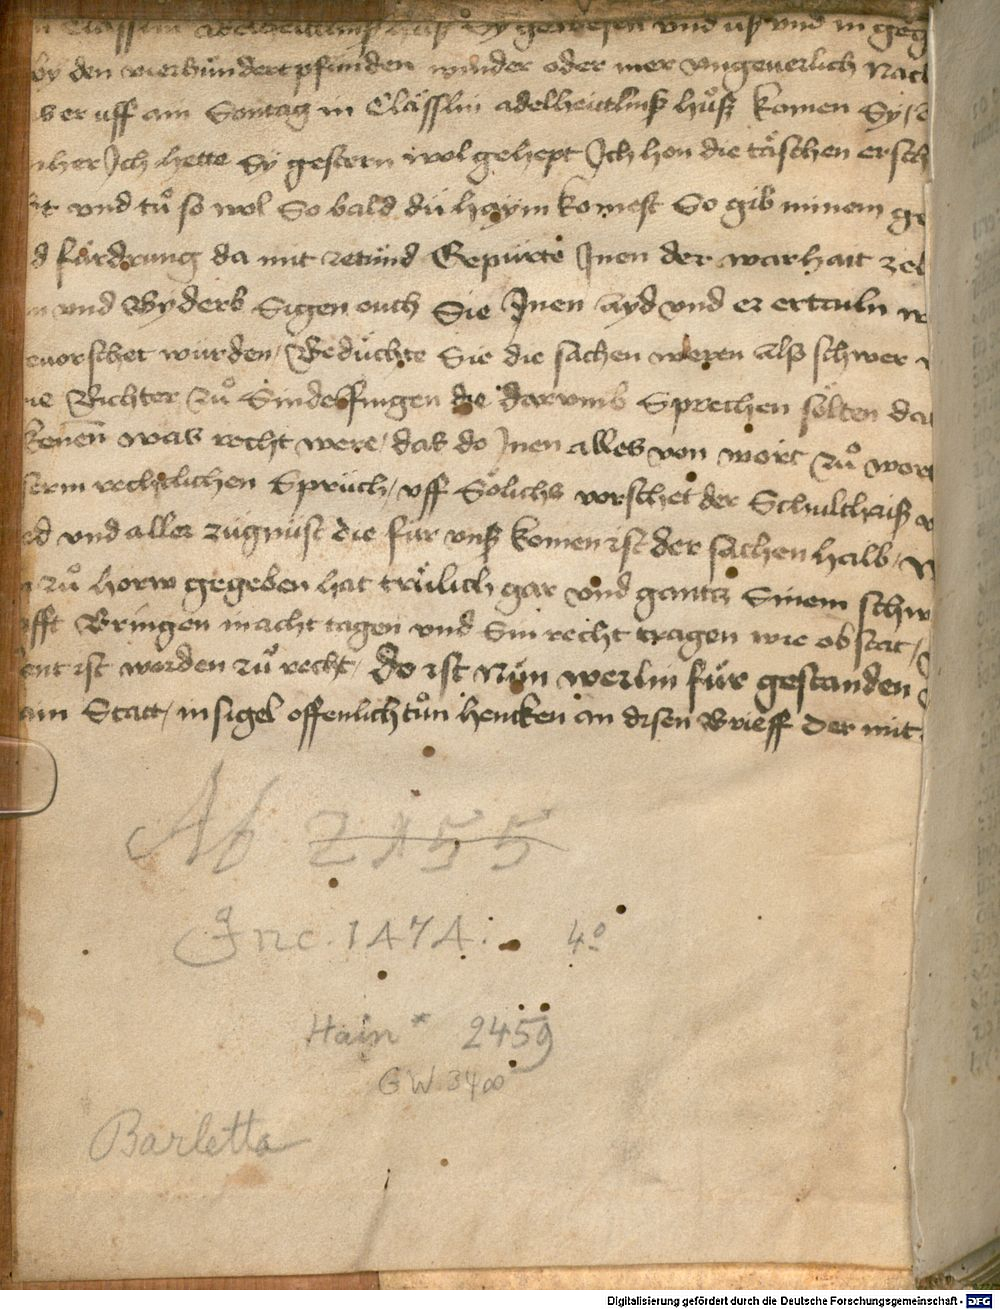 huß Sy gewesen vnd uß vnd in geg
by den vierhundert pfunden minder oder mer vngeuerlich Nach
er uff am Sontag in Clässlin adelheittlinß hůß komen Sy
her Jch hette Sy gestern wol gehept Jch hon die täschen ersch
vnd tů so wol So bald du haym komest So gib minem ge
d fürdrung da mit Jnen der warhait
vnd Wyderb Sigen euch Sie Jnen ayd vnd er ertailn
evorschet wurden / Beduchte Sie die sachen weren alß schwer
Richter zů Sindelffingen die darvmb Sprechen sölten
kenen was recht were / das do Jnen alles von wort zů wort
serm rechtlichen Spruch / vff Sölichs vorschet der Schulthaiß
vnd aller zügnust die für vnß komen ist der sachen halb
zů horw gegeben hat trülich gar vnd gantz Sinem schw
fft Bringen in acht tagen vnd Sin recht tragen wie ob stat /
ent ist worden zů recht / do ist Nun werlin für gestanden
Statt / insigel offenlich tůn hencken an disen Brieff Der mit
Ab 2155
Inc. 1474. 4º
Hain * 2459
GW 3400
Barletta
Digitalisierung gefördert durch die Deutsche Forschungsgemeinschaft - DFG